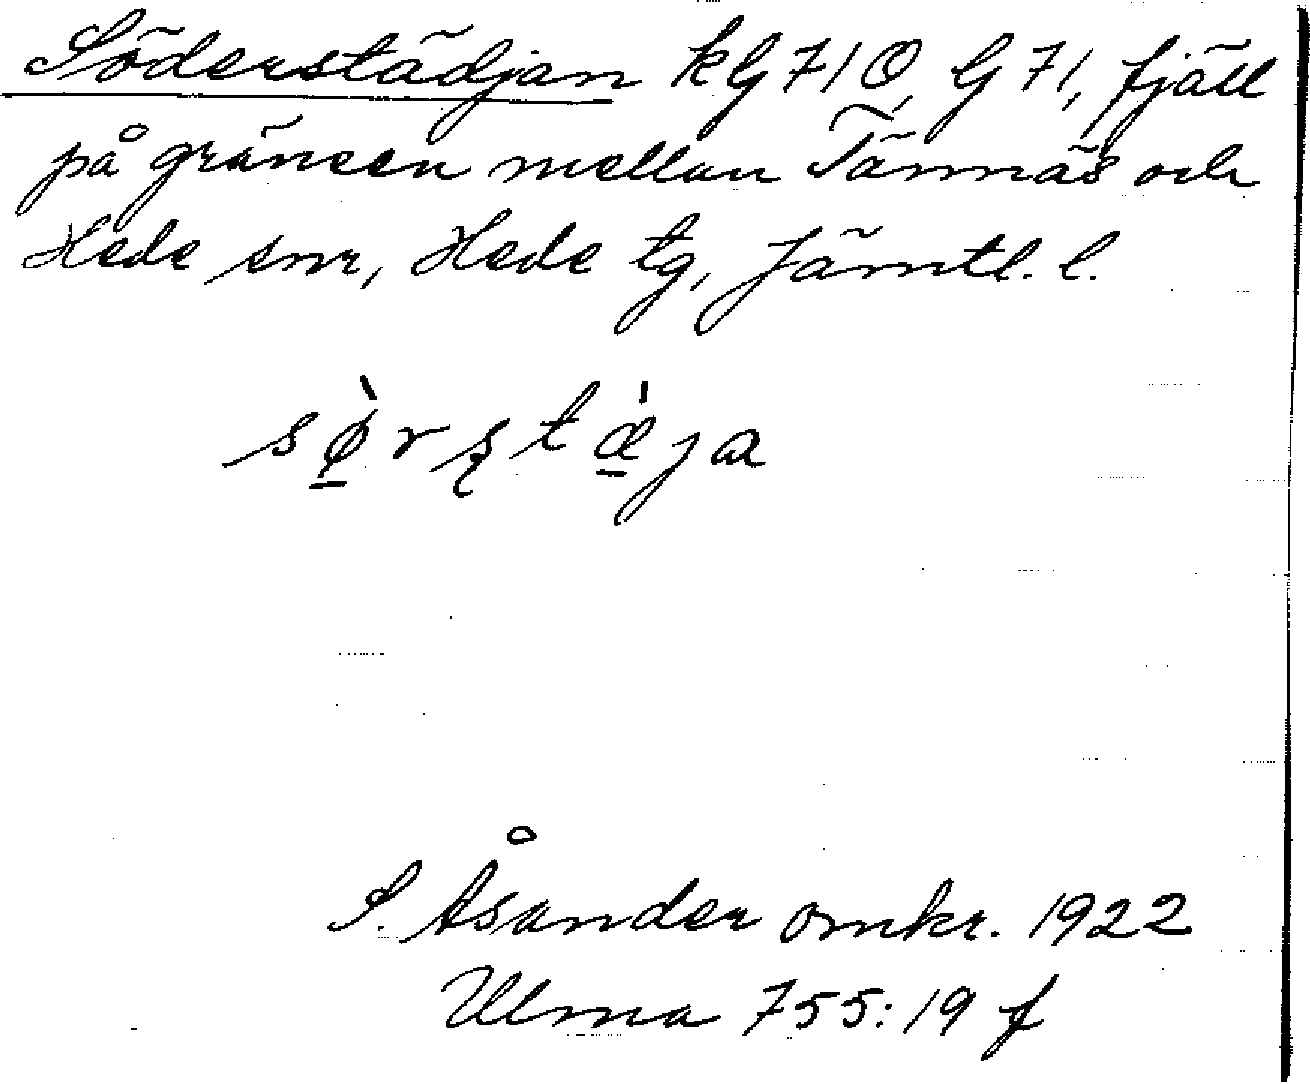 Söderstädjan kG710, G71, fjäll
på gränsen mellan Tännäs och
Hede snr, Hede tg, Jämtl. l.
sø̠̀rʂtæ̠̀ja
S. Åsander omkr. 1922
Ulma 755:19 f